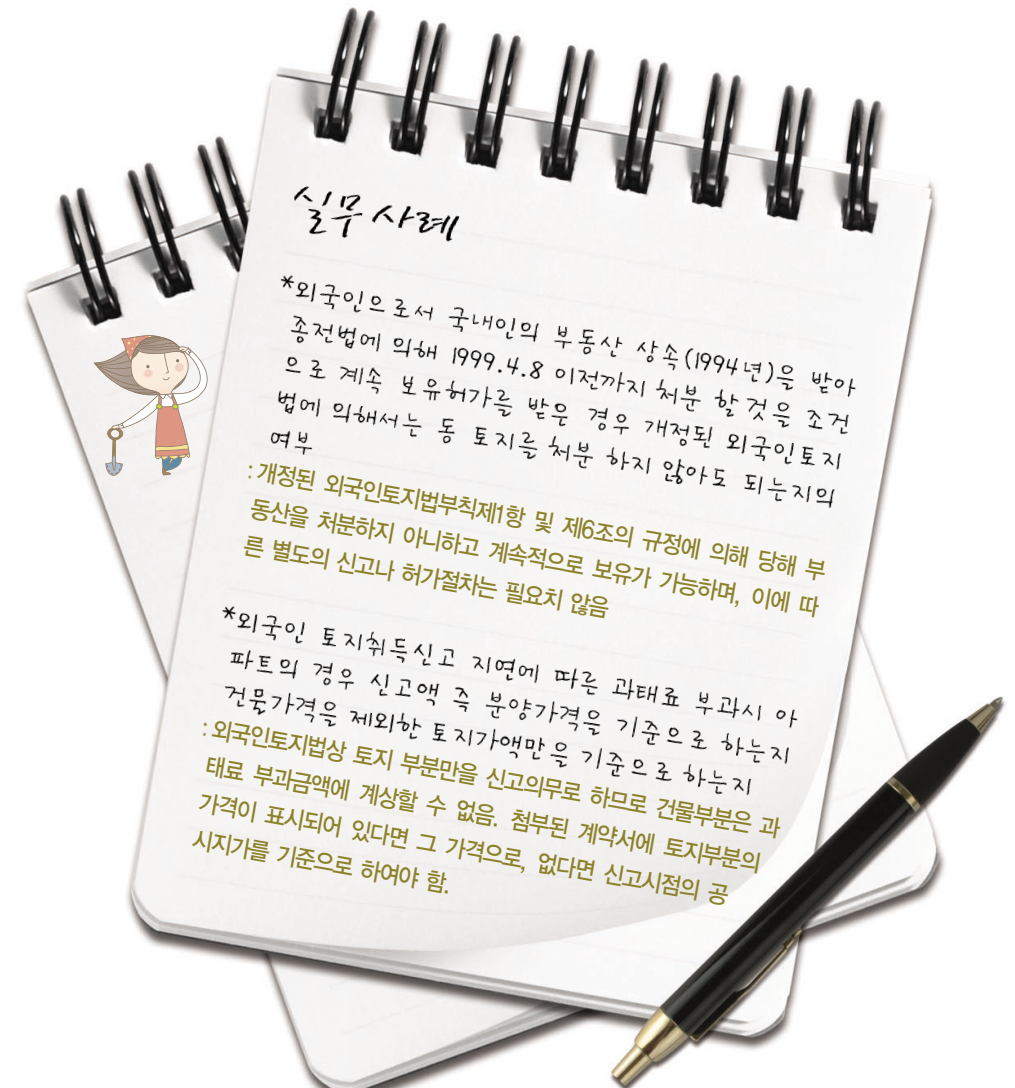 실무 사례
*외국인으로서 국내인의 부동산 상속(1994년)을 받아
종전법에 의해 1999.4.8 이전까지 처분 할 것을 조건
으로 계속 보유허가를 받은 경우 개정된 외국인토지
법에 의해서는 동 토지를 처분 하지 않아도 되는지의
여부
: 개정된 외국인토지법부칙제1항 및 제6조의 규정에 의해 당해 부
동산을 처분하지 아니하고 계속적으로 보유가 가능하며, 이에 따
른 별도의 신고나 허가절차는 필요치 않음
*외국인 토지취득신고 지연에 따른 과태료 부과시 아
파트의 경우 신고액 즉 분양가격을 기준으로 하는지
건물가격을 제외한 토지가액만을 기준으로 하는지
: 외국인토지법상 토지 부분만을 신고의무로 하므로 건물부분은 과
태료 부과금액에 계상할 수 없음. 첨부된 계약서에 토지부분의
가격이 표시되어 있다면 그 가격으로, 없다면 신고시점의 공
시지가를 기준으로 하여야 함.